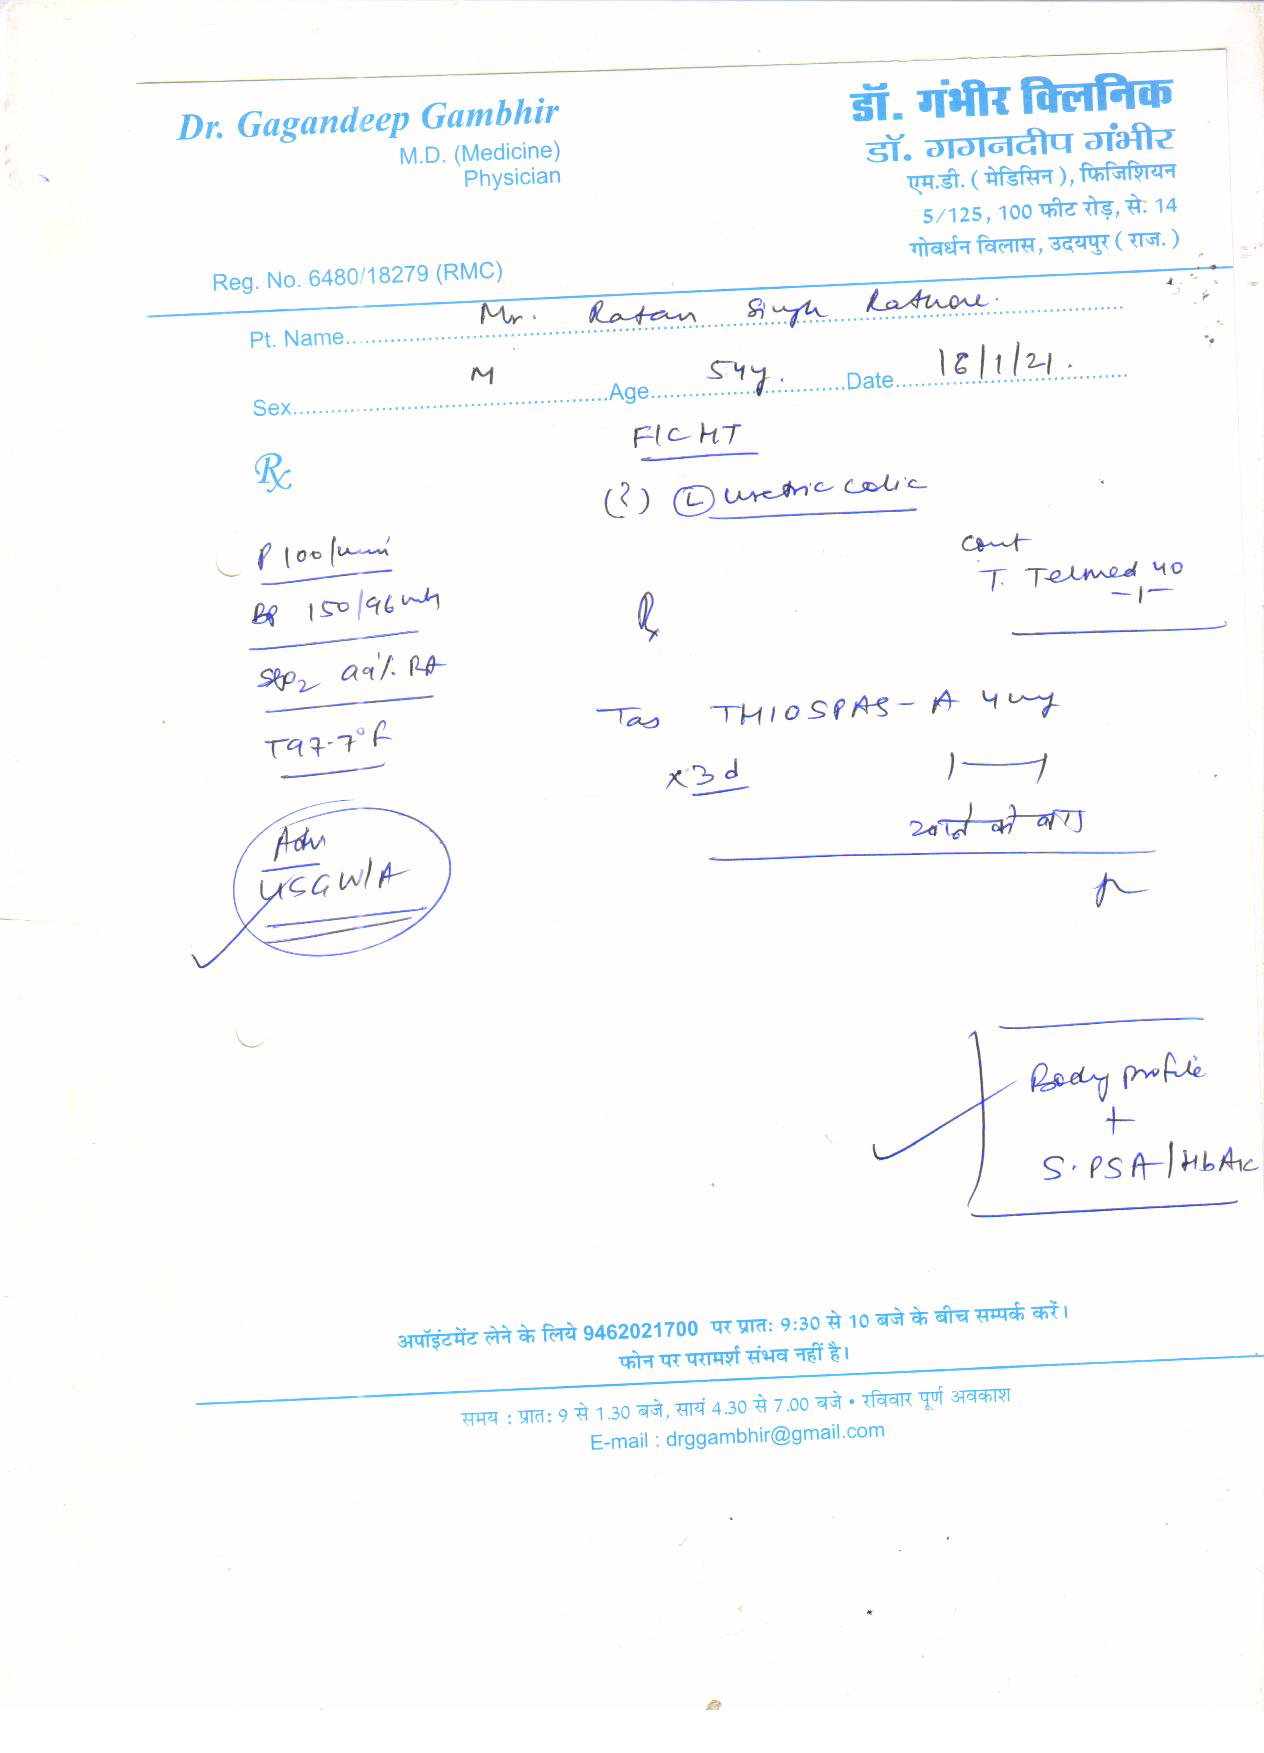 Dr. Gagandeep Gambhir
M.D. (Medicine)
Physician
Reg. No. 6480/18279 (RMC)
डॉ. गंभीर क्लिनिक
डॉ. गगनदीप गंभीर
एम.डी. ( मेडिसिन ), फिजिशियन
5/125, 100 फीट रोड़, से. 14
गोवर्धन विलास, उदयपुर ( राज. )
Pt. Name Mr. Ratan Singh Rathore.
Sex M Age 54y. Date 18/1/21.
F/C HT
Rx
(?) (L) uretric colic
P 100/min
BP 150/96 mm
SPO2 99% RA
T 97.7°F
Cont
T. Telmed 40
-1-
Rx
Tab THIOSPAS-A 4mg
x 3d
खाने के बाद
Adv
USG W/A
Body profile
+
S. PSA/HbA1c
अपॉइंटमेंट लेने के लिये 9462021700 पर प्रातः 9:30 से 10 बजे के बीच सम्पर्क करें।
फोन पर परामर्श संभव नहीं है।
समय : प्रातः 9 से 1.30 बजे, सायं 4.30 से 7.00 बजे • रविवार पूर्ण अवकाश
E-mail : drggambhir@gmail.com